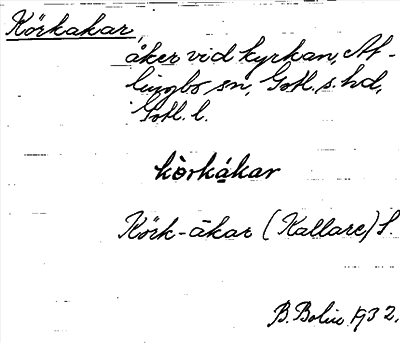 Körkakar,
åker vid kyrkan, At-
lingbo sn, Gotl. s. hd,
Gotl. l.
kòrkákar
Körk-åkar (Kallare) S.
B. Bolin 1932.